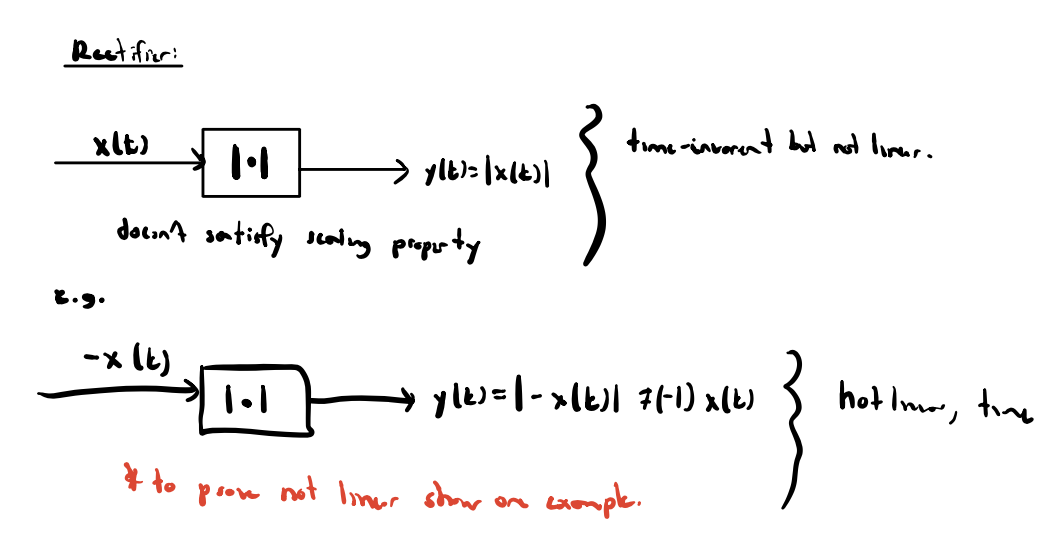 Rectifier:
x(t)
|·|
y(t)=|x(t)|
time-invarent but not linear.
doesn't satisfy scaling property
e.g.
-x(t)
|·|
y(t)=|-x(t)| ≠(-1) x(t)
not linear, time
* to prove not linear show one example.